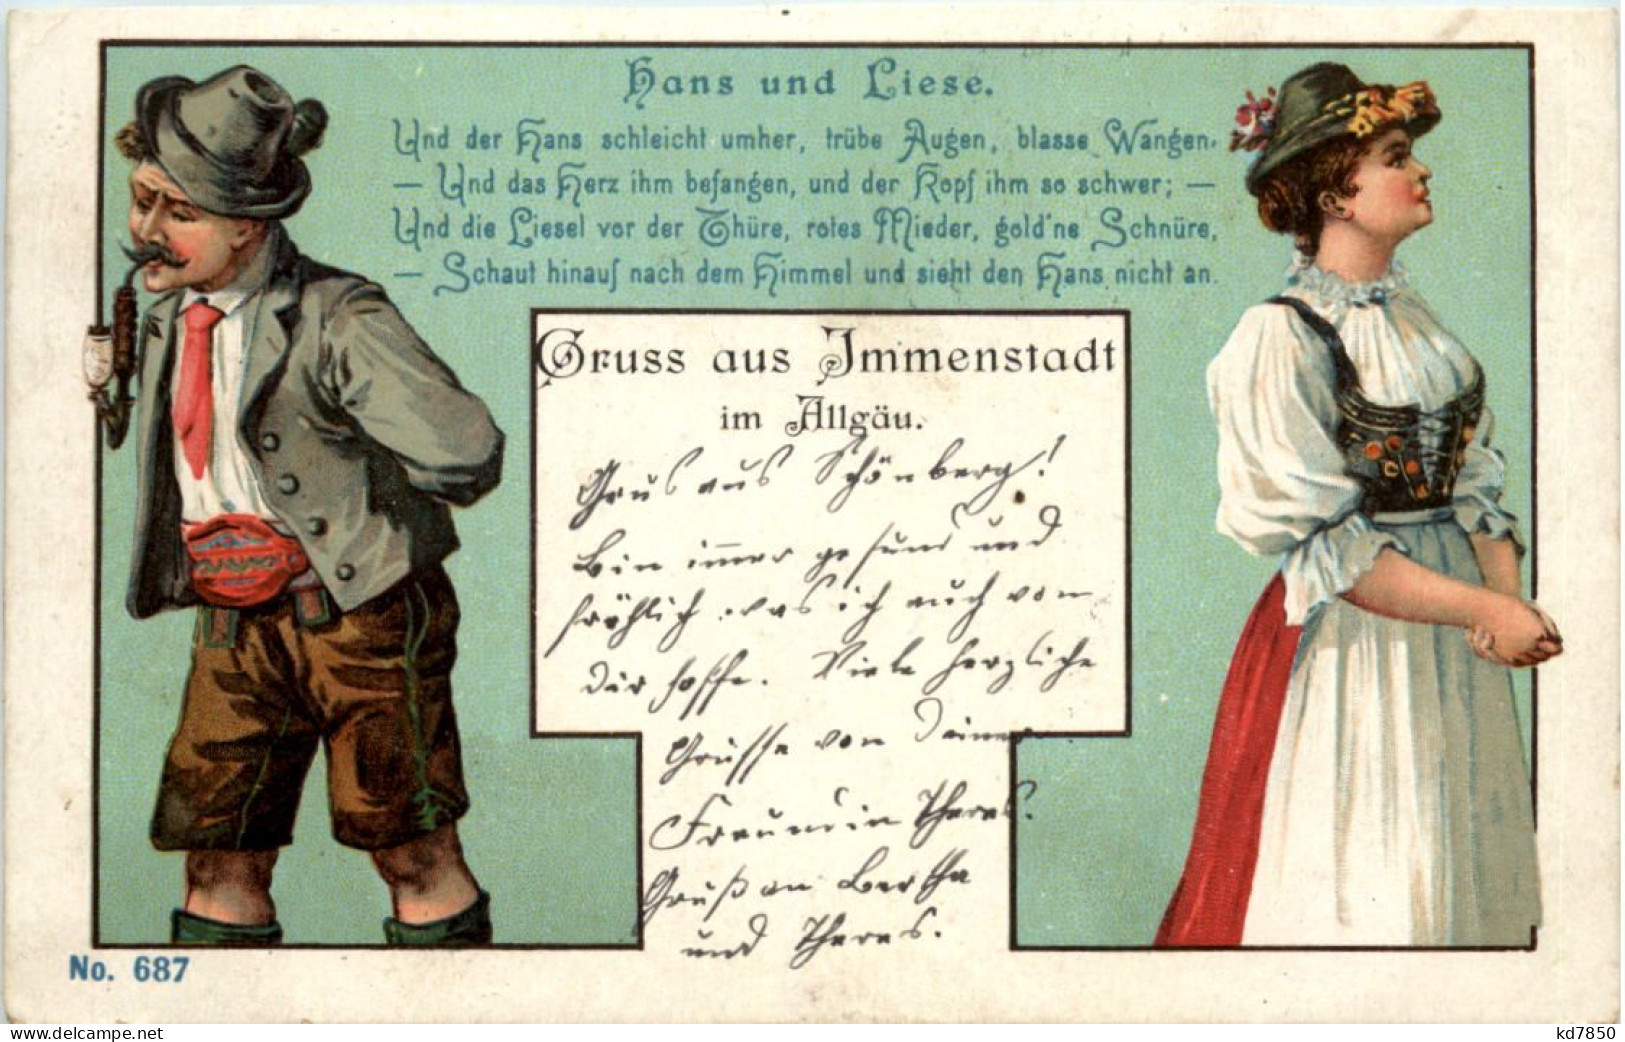 Hans und Liese.
Und der Hans schleicht umher, trübe Augen, blasse Wangen,
— Und das Herz ihm befangen, und der Kopf ihm so schwer; —
Und die Liesel vor der Thüre, rotes Mieder, gold'ne Schnüre,
— Schaut hinauf nach dem Himmel und sieht den Hans nicht an.
Gruss aus Immenstadt
im Allgäu.
Grus aus Schönberg!
Bin im̅er gesund und
fröhlich was ich auch von
dir hoffe. Viele herzliche
Grüsse von Deiner
Freundin Theres.
Gruß an Bertha
und Theres.
No. 687
delcampe.net
kd7850